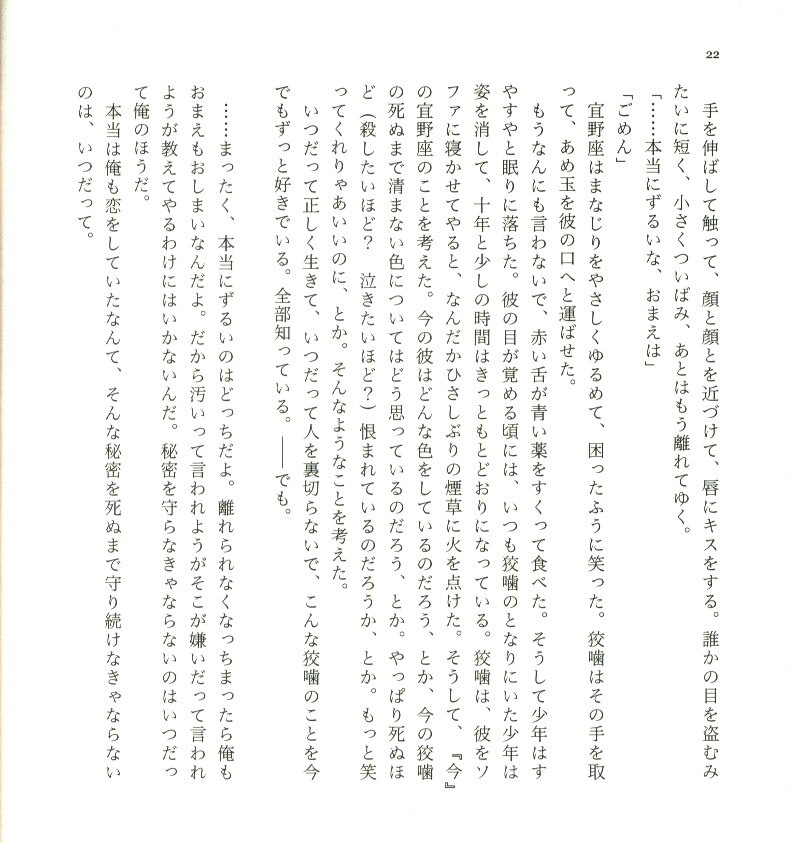 22
手を伸ばして触って、顔と顔とを近づけて、唇にキスをする。誰かの目を盗むみ
たいに短く、小さくついばみ、あとはもう離れてゆく。
「……本当にずるいな、おまえは」
「ごめん」
宜野座はまなじりをやさしくゆるめて、困ったふうに笑った。狡噛はその手を取
って、あめ玉を彼の口へと運ばせた。
もうなんにも言わないで、赤い舌が青い薬をすくって食べた。そうして少年はす
やすやと眠りに落ちた。彼の目が覚める頃には、いつも狡噛のとなりにいた少年は
姿を消して、十年と少しの時間はきっともとどおりになっている。狡噛は、彼をソ
ファに寝かせてやると、なんだかひさしぶりの煙草に火を点けた。そうして、『今』
の宜野座のことを考えた。今の彼はどんな色をしているのだろう、とか、今の狡噛
の死ぬまで清まない色についてはどう思っているのだろう、とか。やっぱり死ぬほ
ど（殺したいほど？　泣きたいほど？）恨まれているのだろうか、とか。もっと笑
ってくれりゃあいいのに、とか。そんなようなことを考えた。
いつだって正しく生きて、いつだって人を裏切らないで、こんな狡噛のことを今
でもずっと好きでいる。全部知っている。――でも。
……まったく、本当にずるいのはどっちだよ。離れられなくなっちまったら俺も
おまえもおしまいなんだよ。だから汚いって言われようがそこが嫌いだって言われ
ようが教えてやるわけにはいかないんだ。秘密を守らなきゃならないのはいつだっ
て俺のほうだ。
本当は俺も恋をしていたなんて、そんな秘密を死ぬまで守り続けなきゃならない
のは、いつだって。